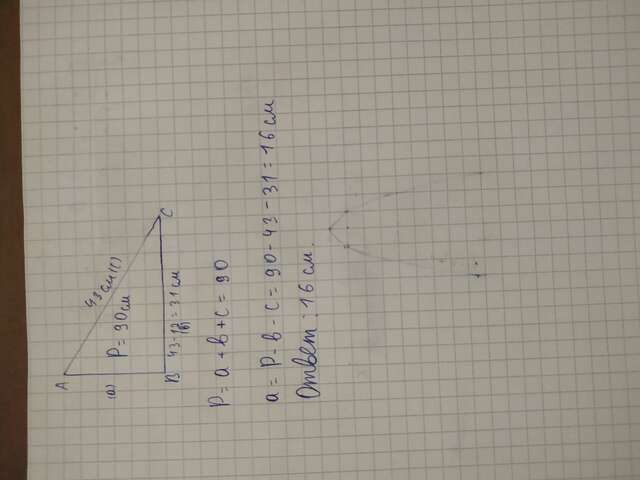 A
43 см (с)
(а)
P = 90 см
43-12 = 31 см
(в)
B
C
P = a + b + c = 90
a = P - b - c = 90 - 43 - 31 = 16 см
Ответ: 16 см.